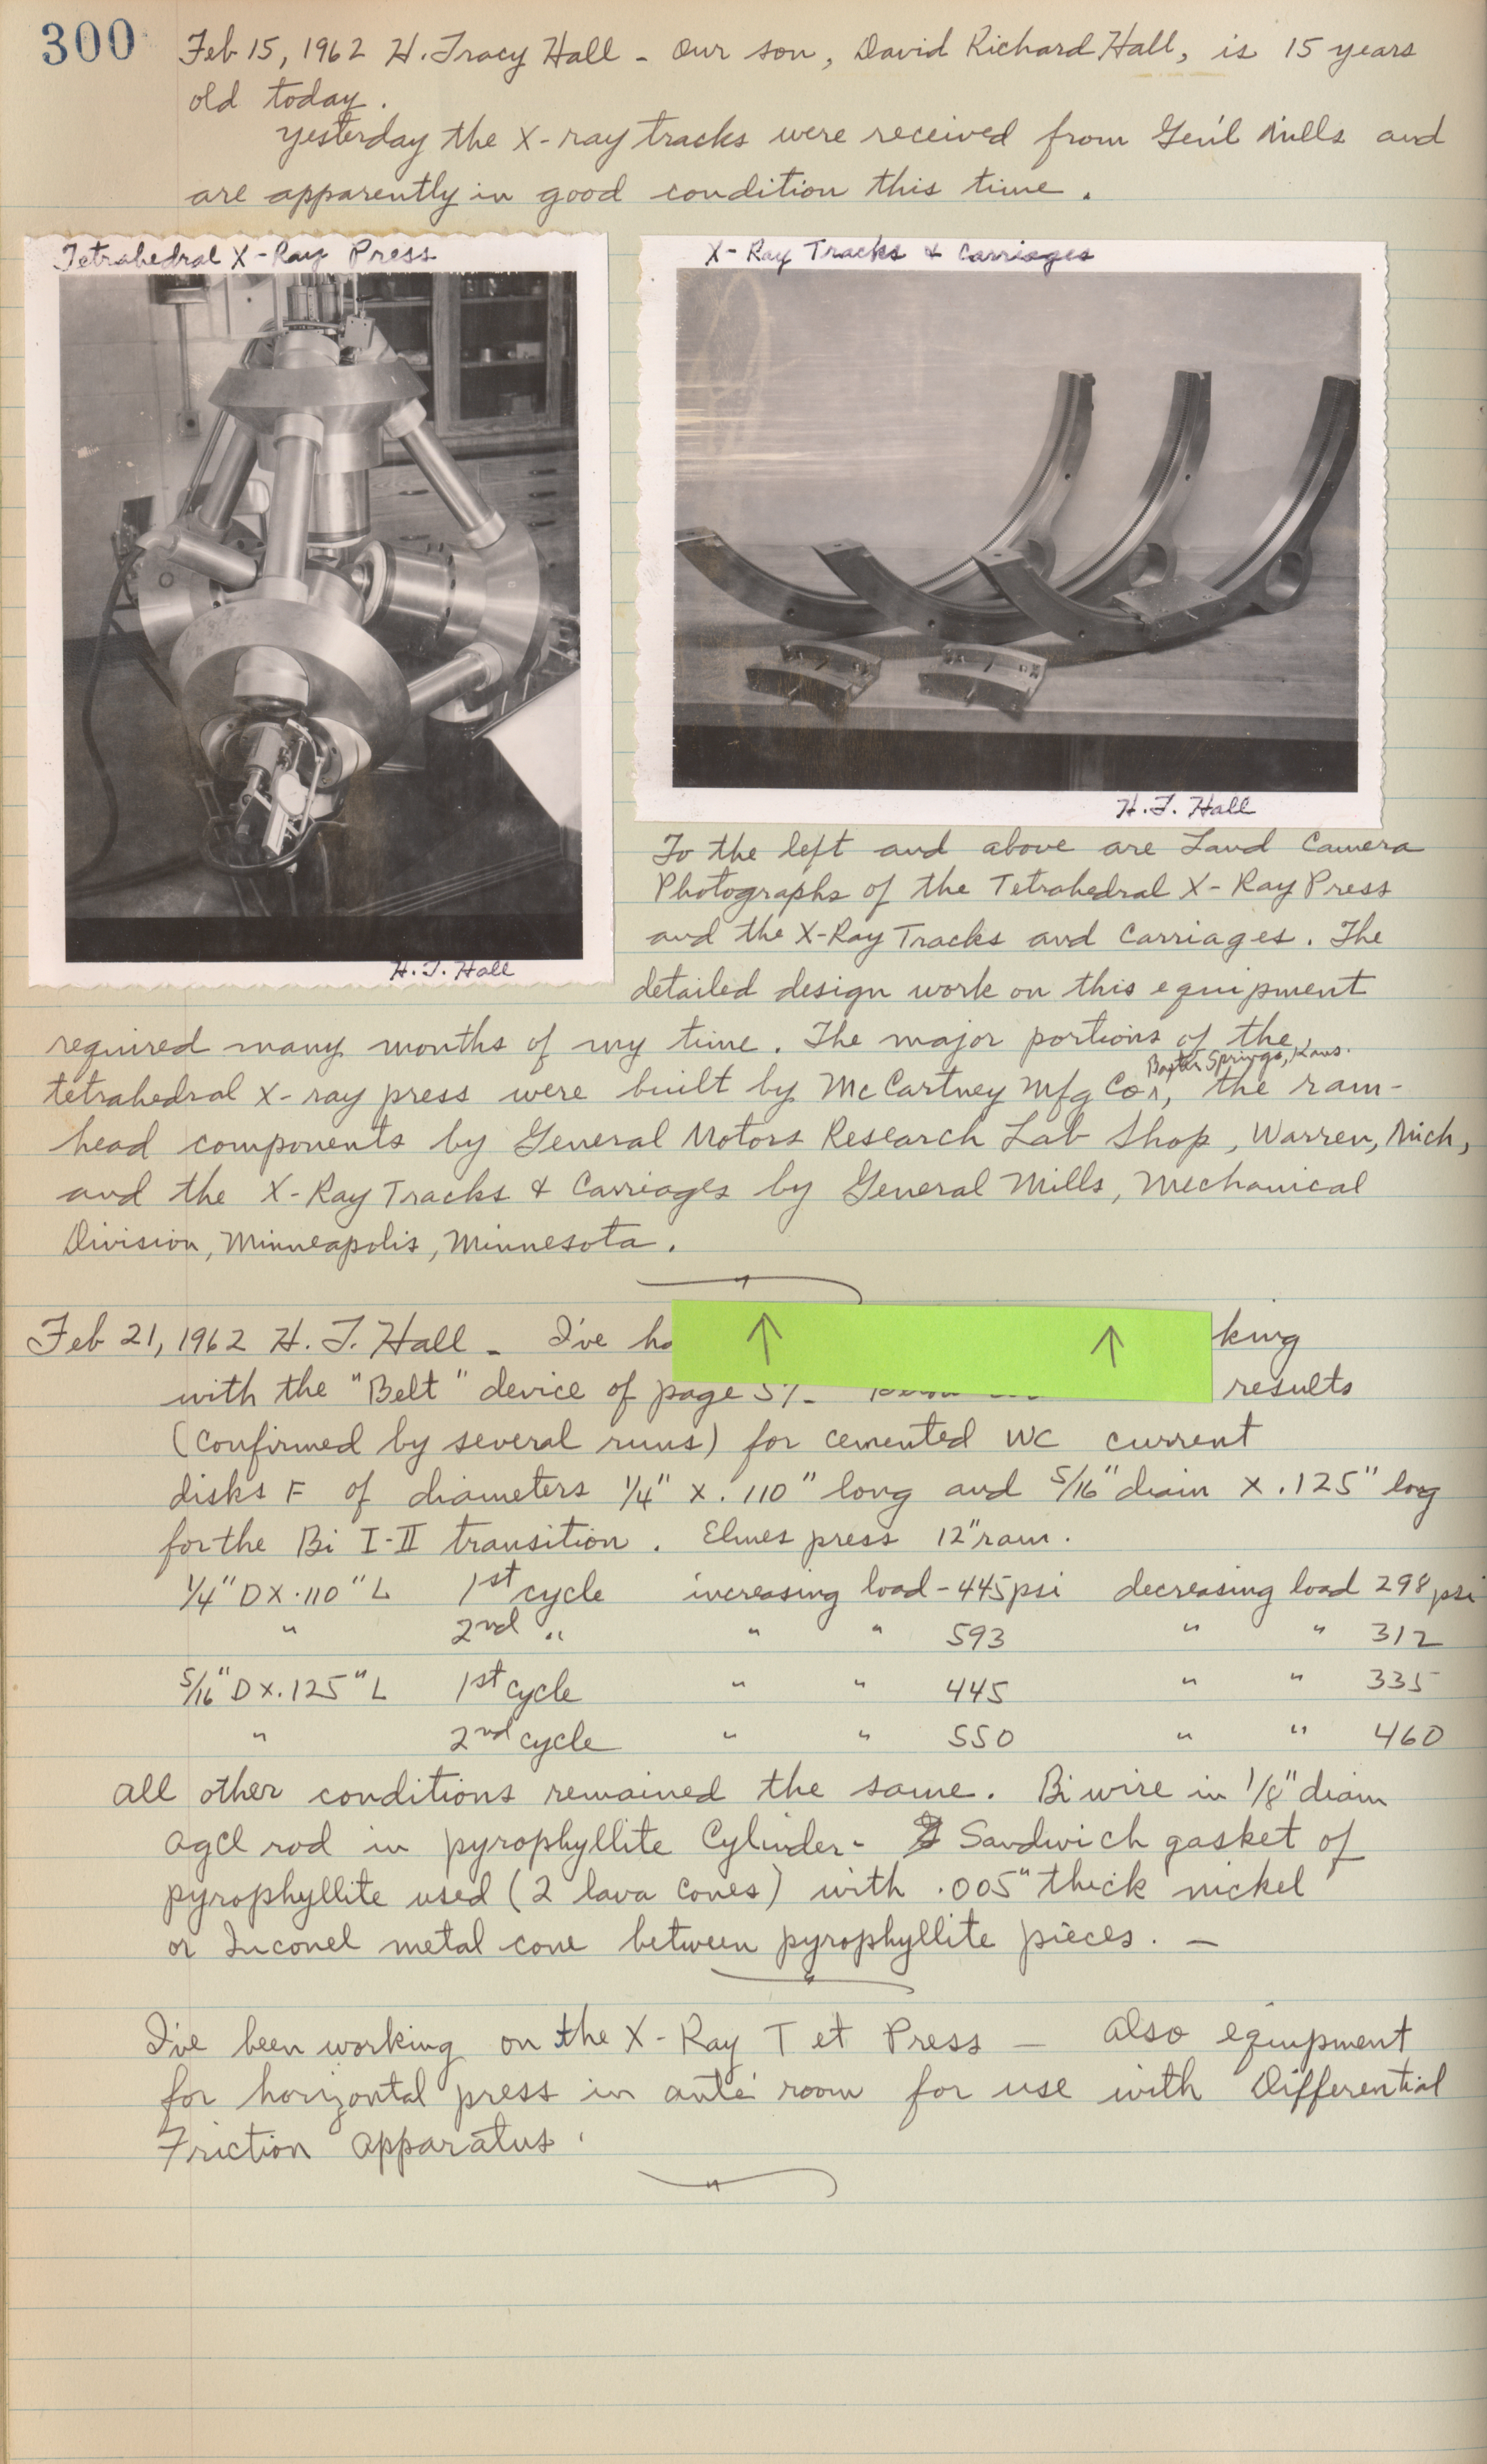 300
Feb 15, 1962 H. Tracy Hall - Our son, David Richard Hall, is 15 years
old today.
Yesterday the X-ray tracks were received from Gen'l Mills and
are apparently in good condition this time.
Tetrahedral X-Ray Press
H. T. Hall
X-Ray Tracks & Carriages
H. T. Hall
To the left and above are Land Camera
Photographs of the Tetrahedral X-Ray Press
and the X-Ray Tracks and Carriages. The
detailed design work on this equipment
required many months of my time. The major portions of the
Baxter Springs, Kans.
tetrahedral X-ray press were built by McCartney Mfg Co., the ram-
head components by General Motors Research Lab Shop, Warren, Mich,
and the X-Ray Tracks & Carriages by General Mills, Mechanical
Division, Minneapolis, Minnesota.
Feb 21, 1962 H. T. Hall - I've ha king
with the "Belt" device of page results
(confirmed by several runs) for cemented WC current
disks F of diameters 1/4" x .110" long and 5/16" diam x .125" long
for the Bi I-II transition. Elmes press 12" ram.
1/4" D X .110" L 1st cycle increasing load - 445 psi decreasing load 298 psi
" 2nd " " " 593 " " 312
5/16" D X .125" L 1st cycle " " 445 " " 335
" 2nd cycle " " 550 " " 460
All other conditions remained the same. Bi wire in 1/8" diam
AgCl rod in pyrophyllite Cylinder - Sandwich gasket of
pyrophyllite used (2 lava cones) with .005" thick nickel
or Inconel metal cone between pyrophyllite pieces. -
I've been working on the X-Ray Tet Press - Also equipment
for horizontal press in ante room for use with Differential
Friction Apparatus.